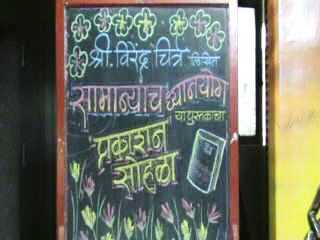 श्री. विरेंद्र चित्रे लिखित
सामान्याच ध्यानयोग
या पुस्तकाचा
प्रकाशन
सोहळा